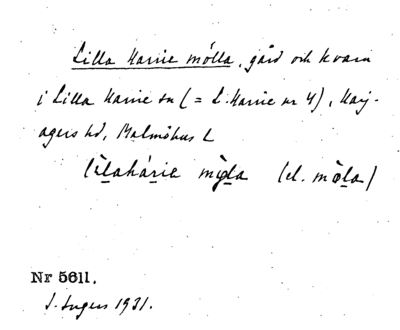 Lilla Harrie mölla, gård och kvarn
i Lilla Harrie sn (= L. Harrie nr 4), Harj-
agers hd, Malmöhus L
lìlahárie mỳla (el. mòla)
Nr 5611.
1931.